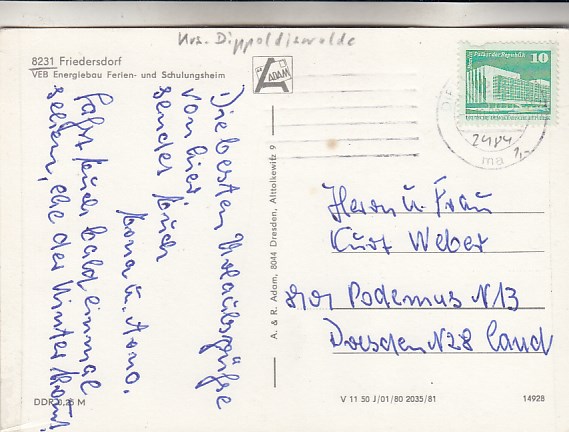 Krs. Dippoldiswalde
8231 Friedersdorf
VEB Energiebau Ferien- und Schulungsheim
ADAM
Palast der Republik
10
2484
ma
1,-
Die besten Urlaubsgrüße
von hier
sendet Euch
Mona u. Arno.
Fahrt Euch bald einmal
sehen, ehe der Winter kommt.
A. & R. Adam, 8044 Dresden, Alttolkewitz 9
Herrn u. Frau
Kurt Weber
8101 Podemus N13
Dresden N28 Land
DDR 0,25 M
V 11 50 J/01/80 2035/81
14928